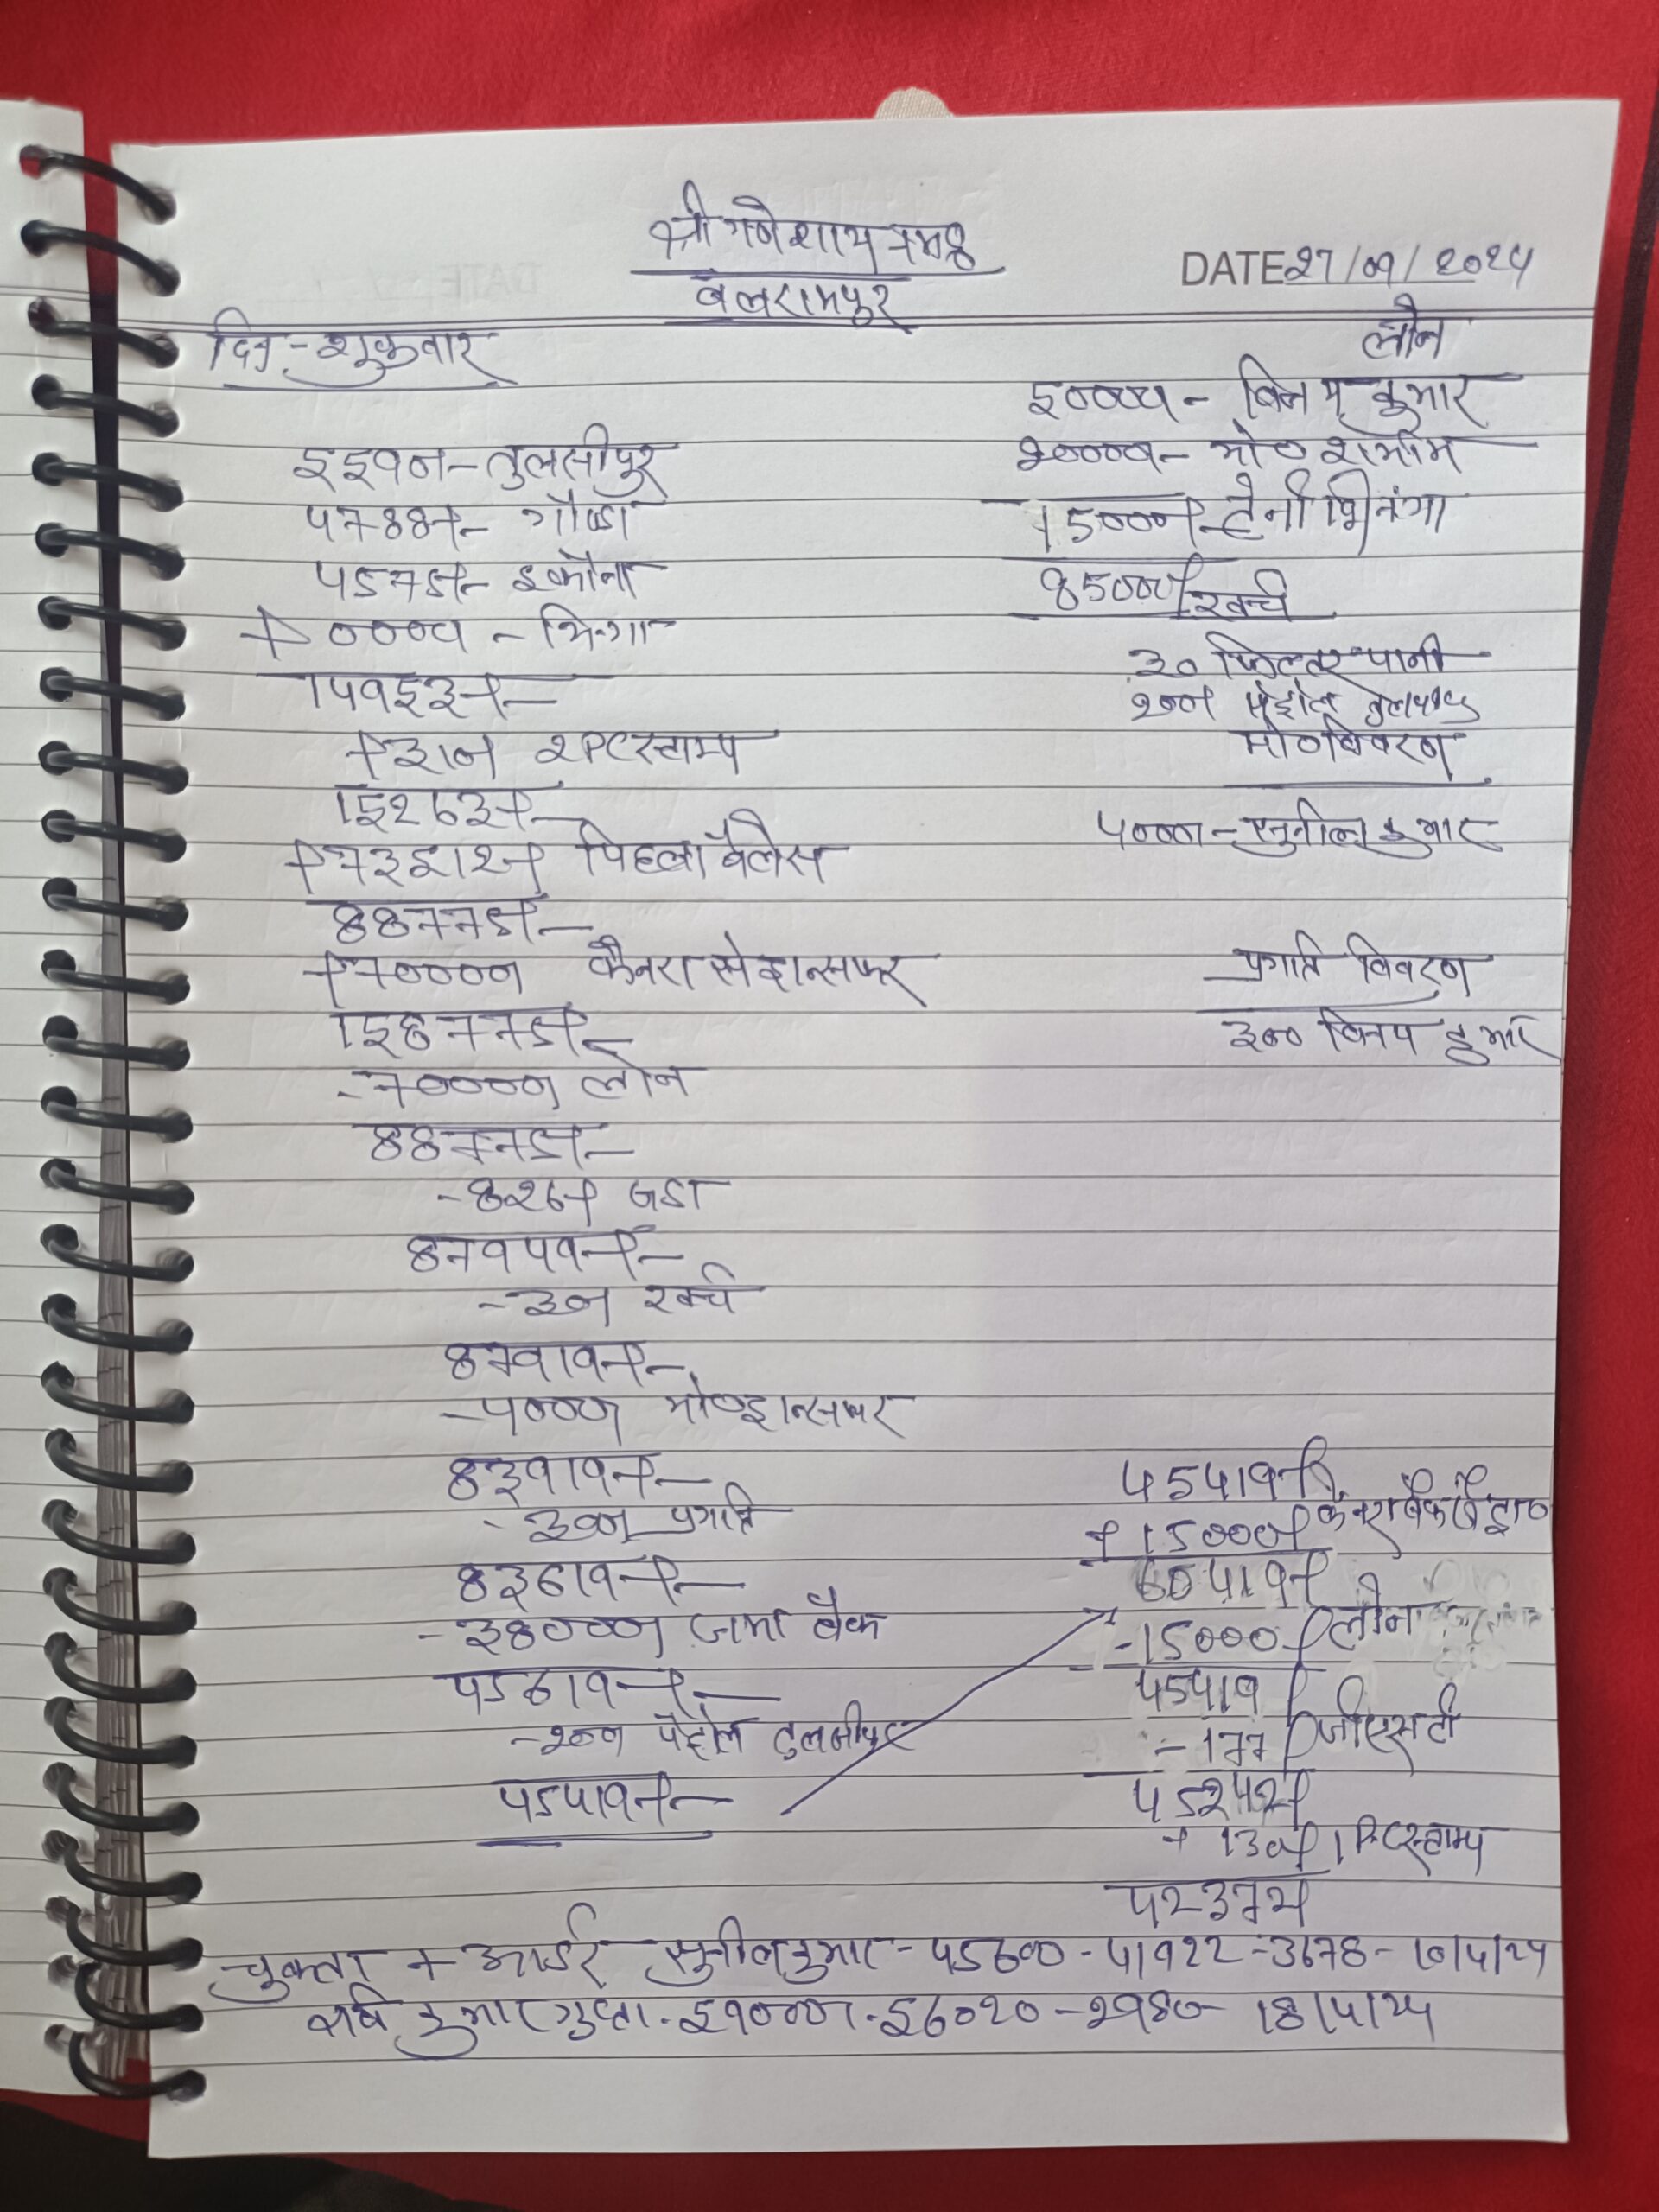 श्री गणेशाय नमः
बलरामपुर
DATE 27/09/2024
दिन - शुक्रवार
लोन
50000 - विनय कुमार
20000 - मो० शमीम
15000/- टेनी भिनगा
85000/- खर्च
30 फिल्टर पानी
200/- पेट्रोल तुलसीपुर
मो० विवरण
4000/- सुनील कुमार
प्रगति विवरण
300 विनय कुमार
5590/- तुलसीपुर
4788/- गौण्डा
4575/- इकौना
+ 0000 - भिनगा
14953/-
+ 310/- 2 PC स्टाम्प
15263/-
+ 73512/- पिछला बैलेंस
88775/-
+ 70000/- कैनरा से ट्रान्सफर
158775/-
- 70000/- लोन
88775/-
- 826/- GST
87949/-
- 30/- खर्च
87919/-
- 4000/- मो० ट्रान्सफर
83919/-
- 300/- प्रगति
83619/-
- 38000/- जमा बैंक
45619/-
- 200/- पेट्रोल तुलसीपुर
45419/-
45419/-
+ 15000/- कैनरा बैंक विड्रा०
60419/-
- 15000/- लोन
45419/-
- 177/- जीएसटी
45242/-
+ 130/- 1 PC स्टाम्प
42372/-
चुकता + आर्डर सुनील कुमार - 45600 - 41922 - 3678 - 10/4/24
रवि कुमार गुप्ता - 59000/- - 56020 - 2980 - 18/4/24